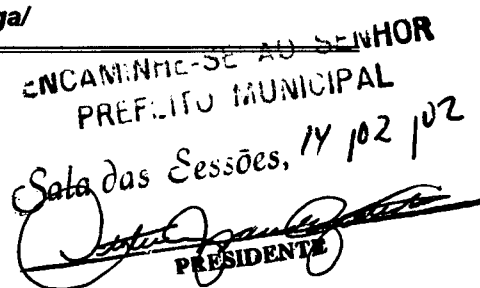 ga/
ENCAMINHE-SE AO SENHOR
PREFEITO MUNICIPAL
Sala das Sessões, 14/02/02
PRESIDENTE